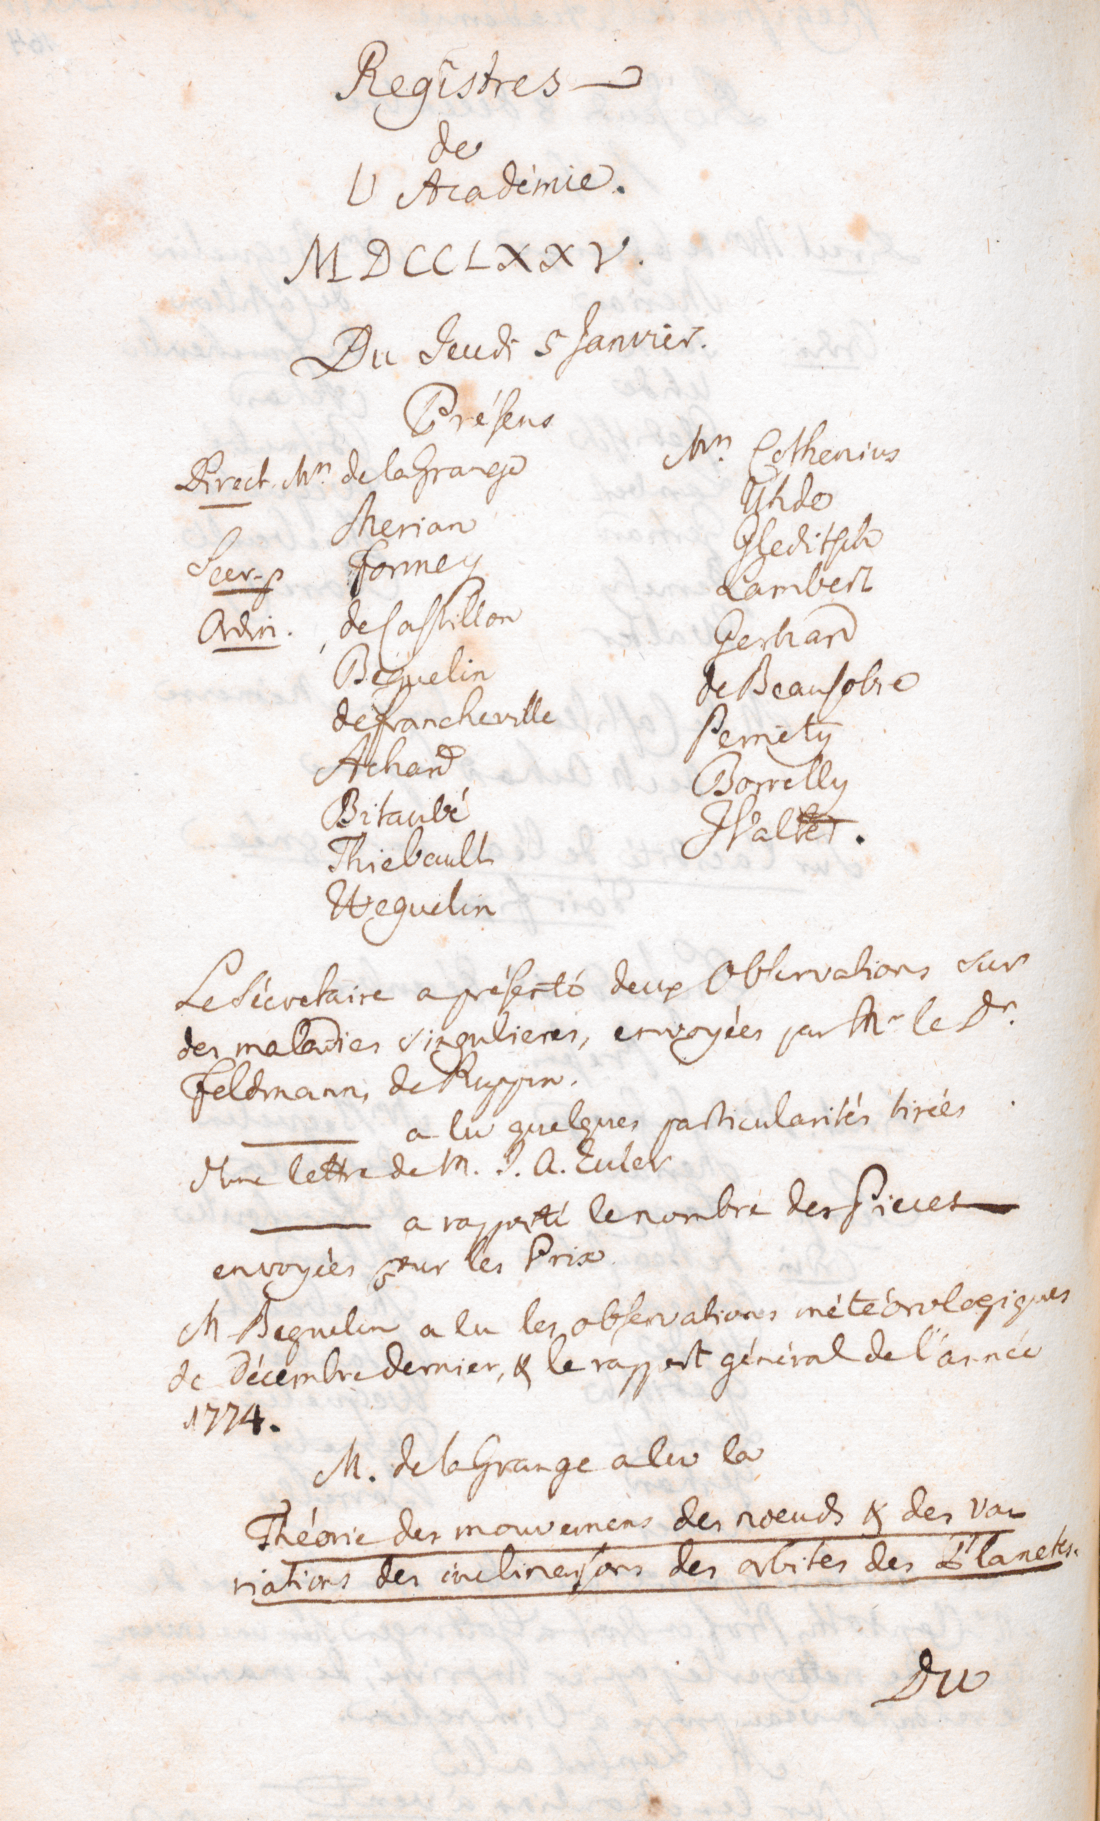 Registres
de
L'Académie.
MDCCLXXV.
Du Jeudi 5 Janvier.
Présens
Direct. Mrs de la Grange
Merian
Secr. p Formey
Adm. de Castillon
Beguelin
de Francheville
Achard
Bitaubé
Thiebault
Weguelin
Mrs. Cothenius
Uhde
Gleditsch
Lambert
Gerhard
de Beausobre
Pernety
Borrelly
Walter.
Le Sécretaire a présenté deux Observations sur
des maladies singulieres, envoyées par Mr le Dr.
Feldmann, de Ruppin.
——— a lu quelques particularités tirées
d'une lettre de M. J. A. Euler
——— a rapporté le nombre des Pieces
envoyées pour les Prix
M Beguelin a lu les observations météorologiques
de Décembre dernier, & le rapport général de l'année
1774.
M. de la Grange a lu la
Théorie des mouvemens des noeuds & des va-
riations des inclinaisons des orbites des Planetes.
Du